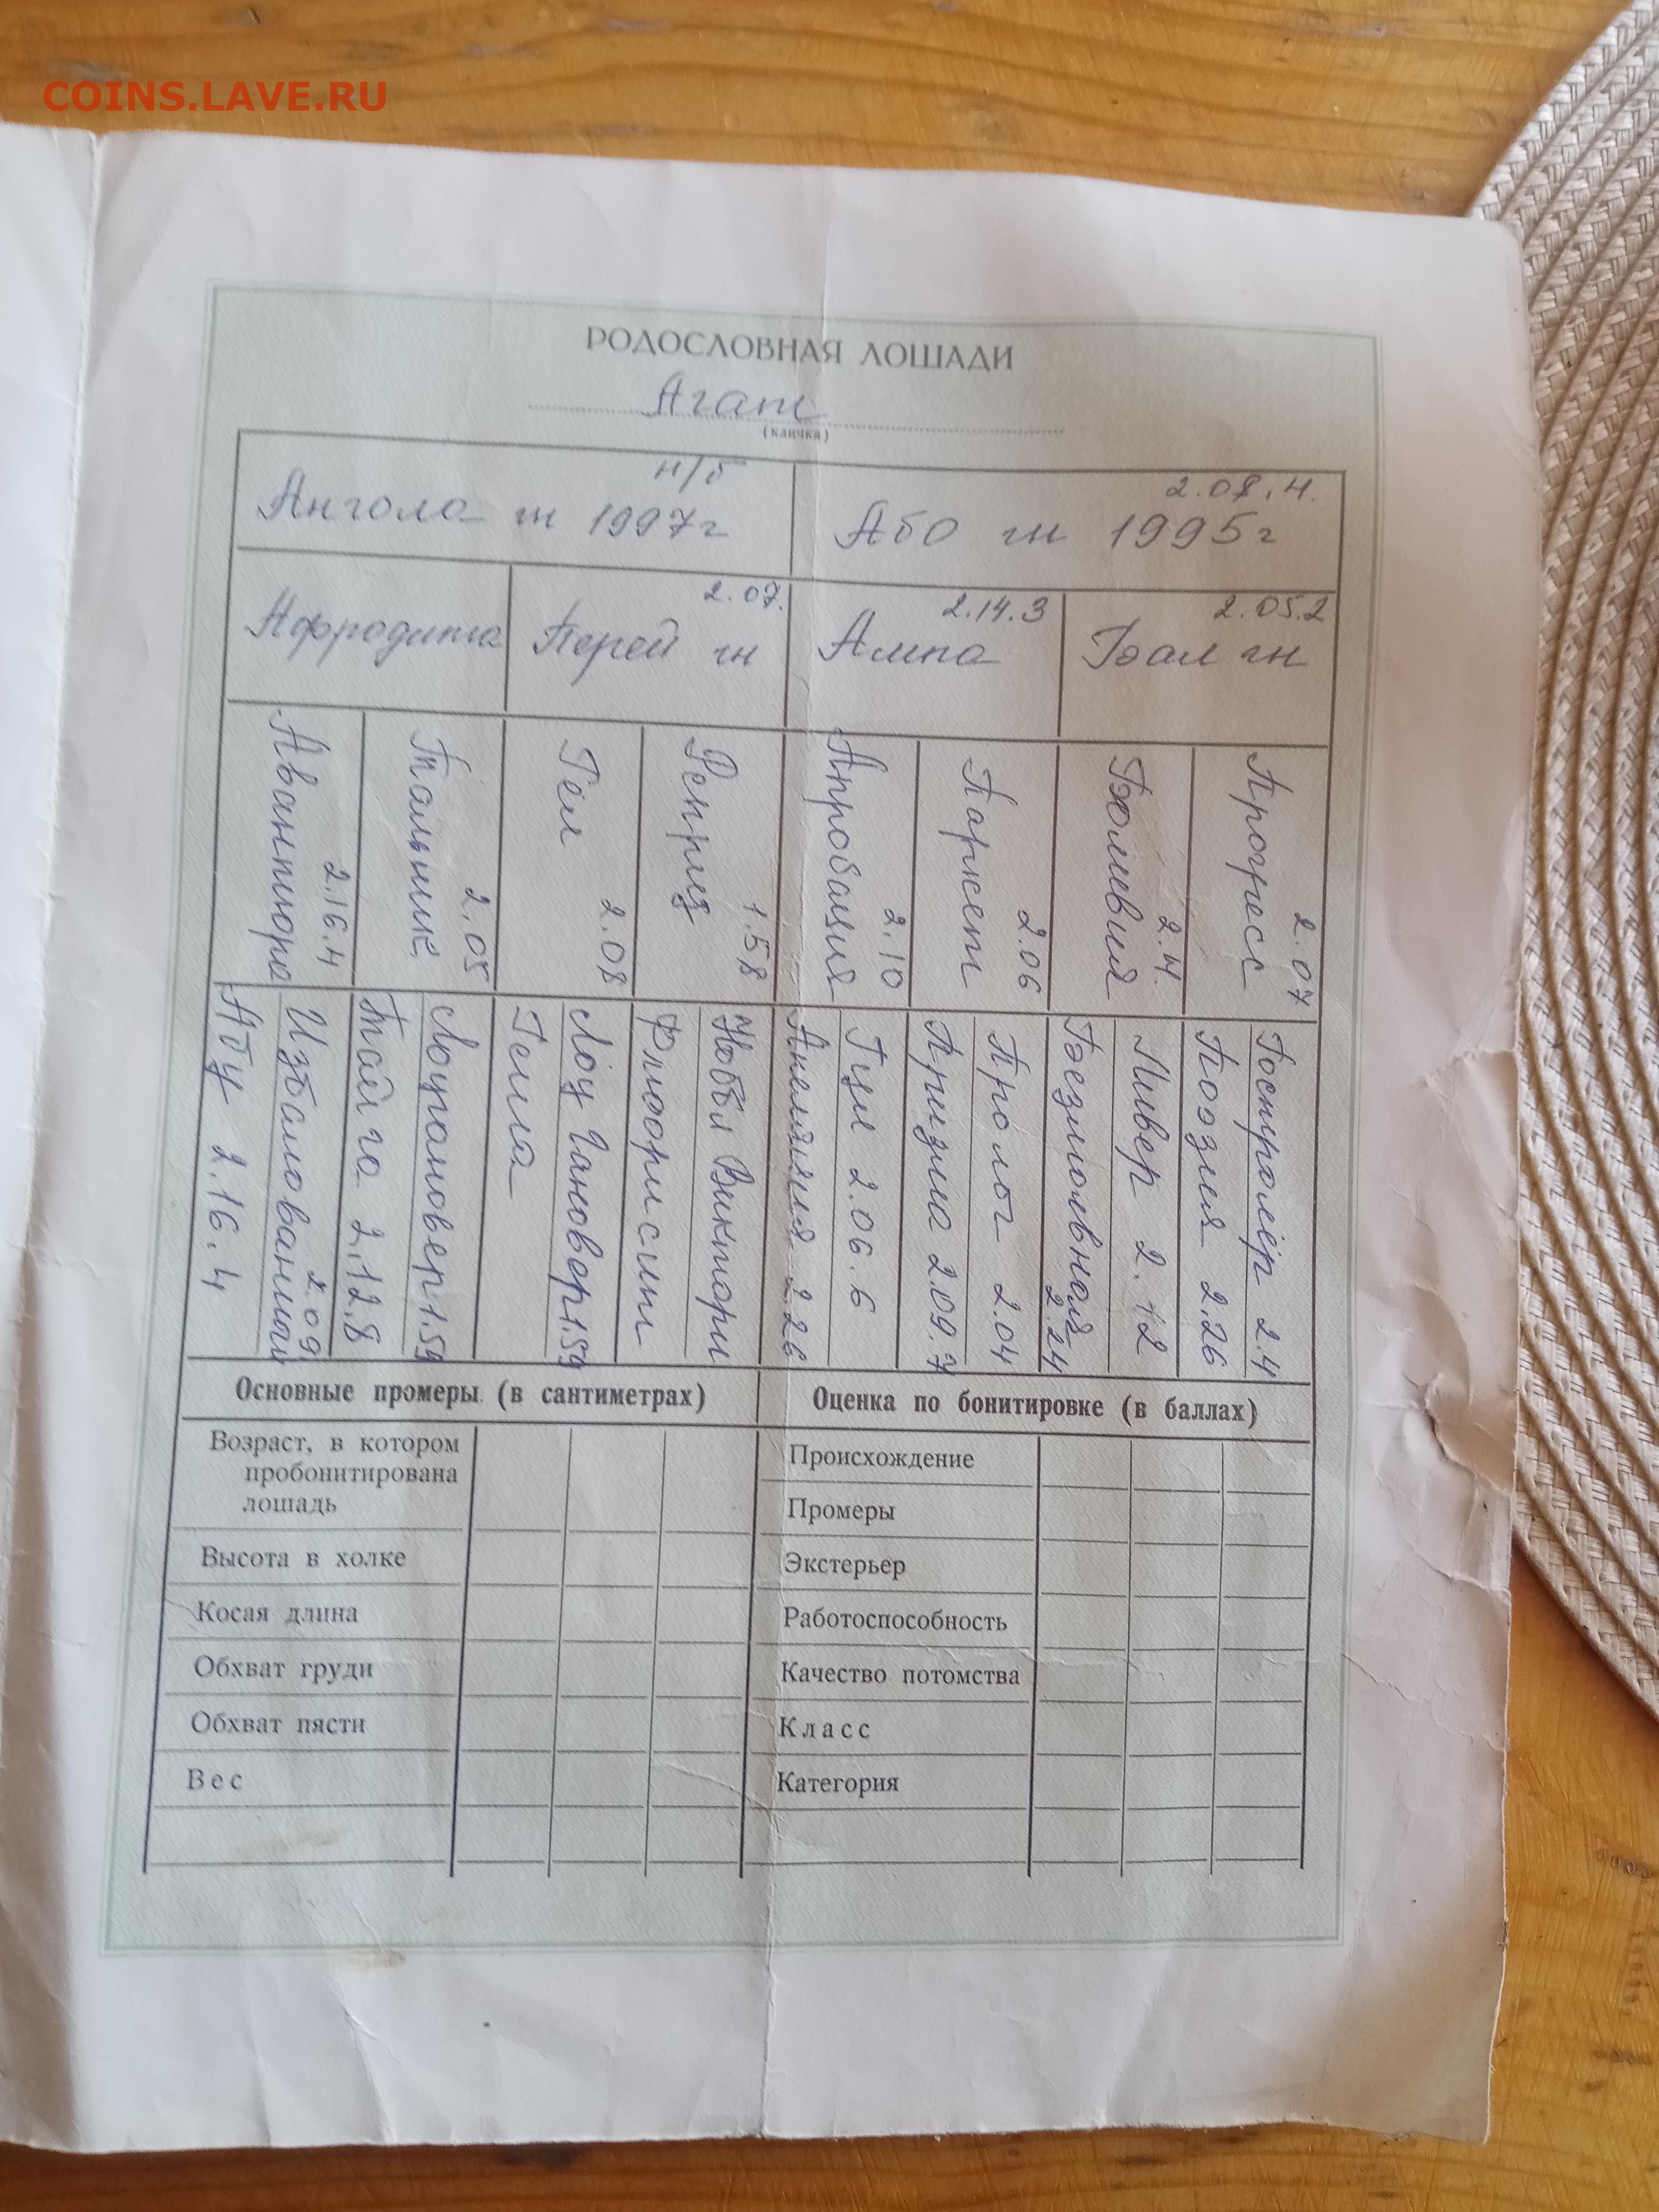 COINS.LAVE.RU
РОДОСЛОВНАЯ ЛОШАДИ
Агат
(кличка)
н/б
Ангола гн 1997г
2.08.4.
Або гн 1995г
Афродита
2.07.
Перей гн
2.14.3
Ампа
2.05.2
Бал гн
Авантюра
2.16.4
Тальник
2.05
Гел
2.08
Реприз
1.58
Апробация
2.10
Паркет
2.06
Боливия
2.4.
Прогресс
2.07
Абу 2.16.4
Избалованный
2.09
Тайга 2.12.8
Лоу Гановер 1.59
Флюорисит
Нобл Виктори
Гул 2.06.6
Призма 2.09.7
Пролог 2.04
Безмолвная
2.24
Ливер 2.12
Поэзия 2.26
Гастролёр 2.4
Основные промеры (в сантиметрах)
Оценка по бонитировке (в баллах)
Возраст, в котором
пробонитирована
лошадь
Высота в холке
Косая длина
Обхват груди
Обхват пясти
Вес
Происхождение
Промеры
Экстерьер
Работоспособность
Качество потомства
Класс
Категория